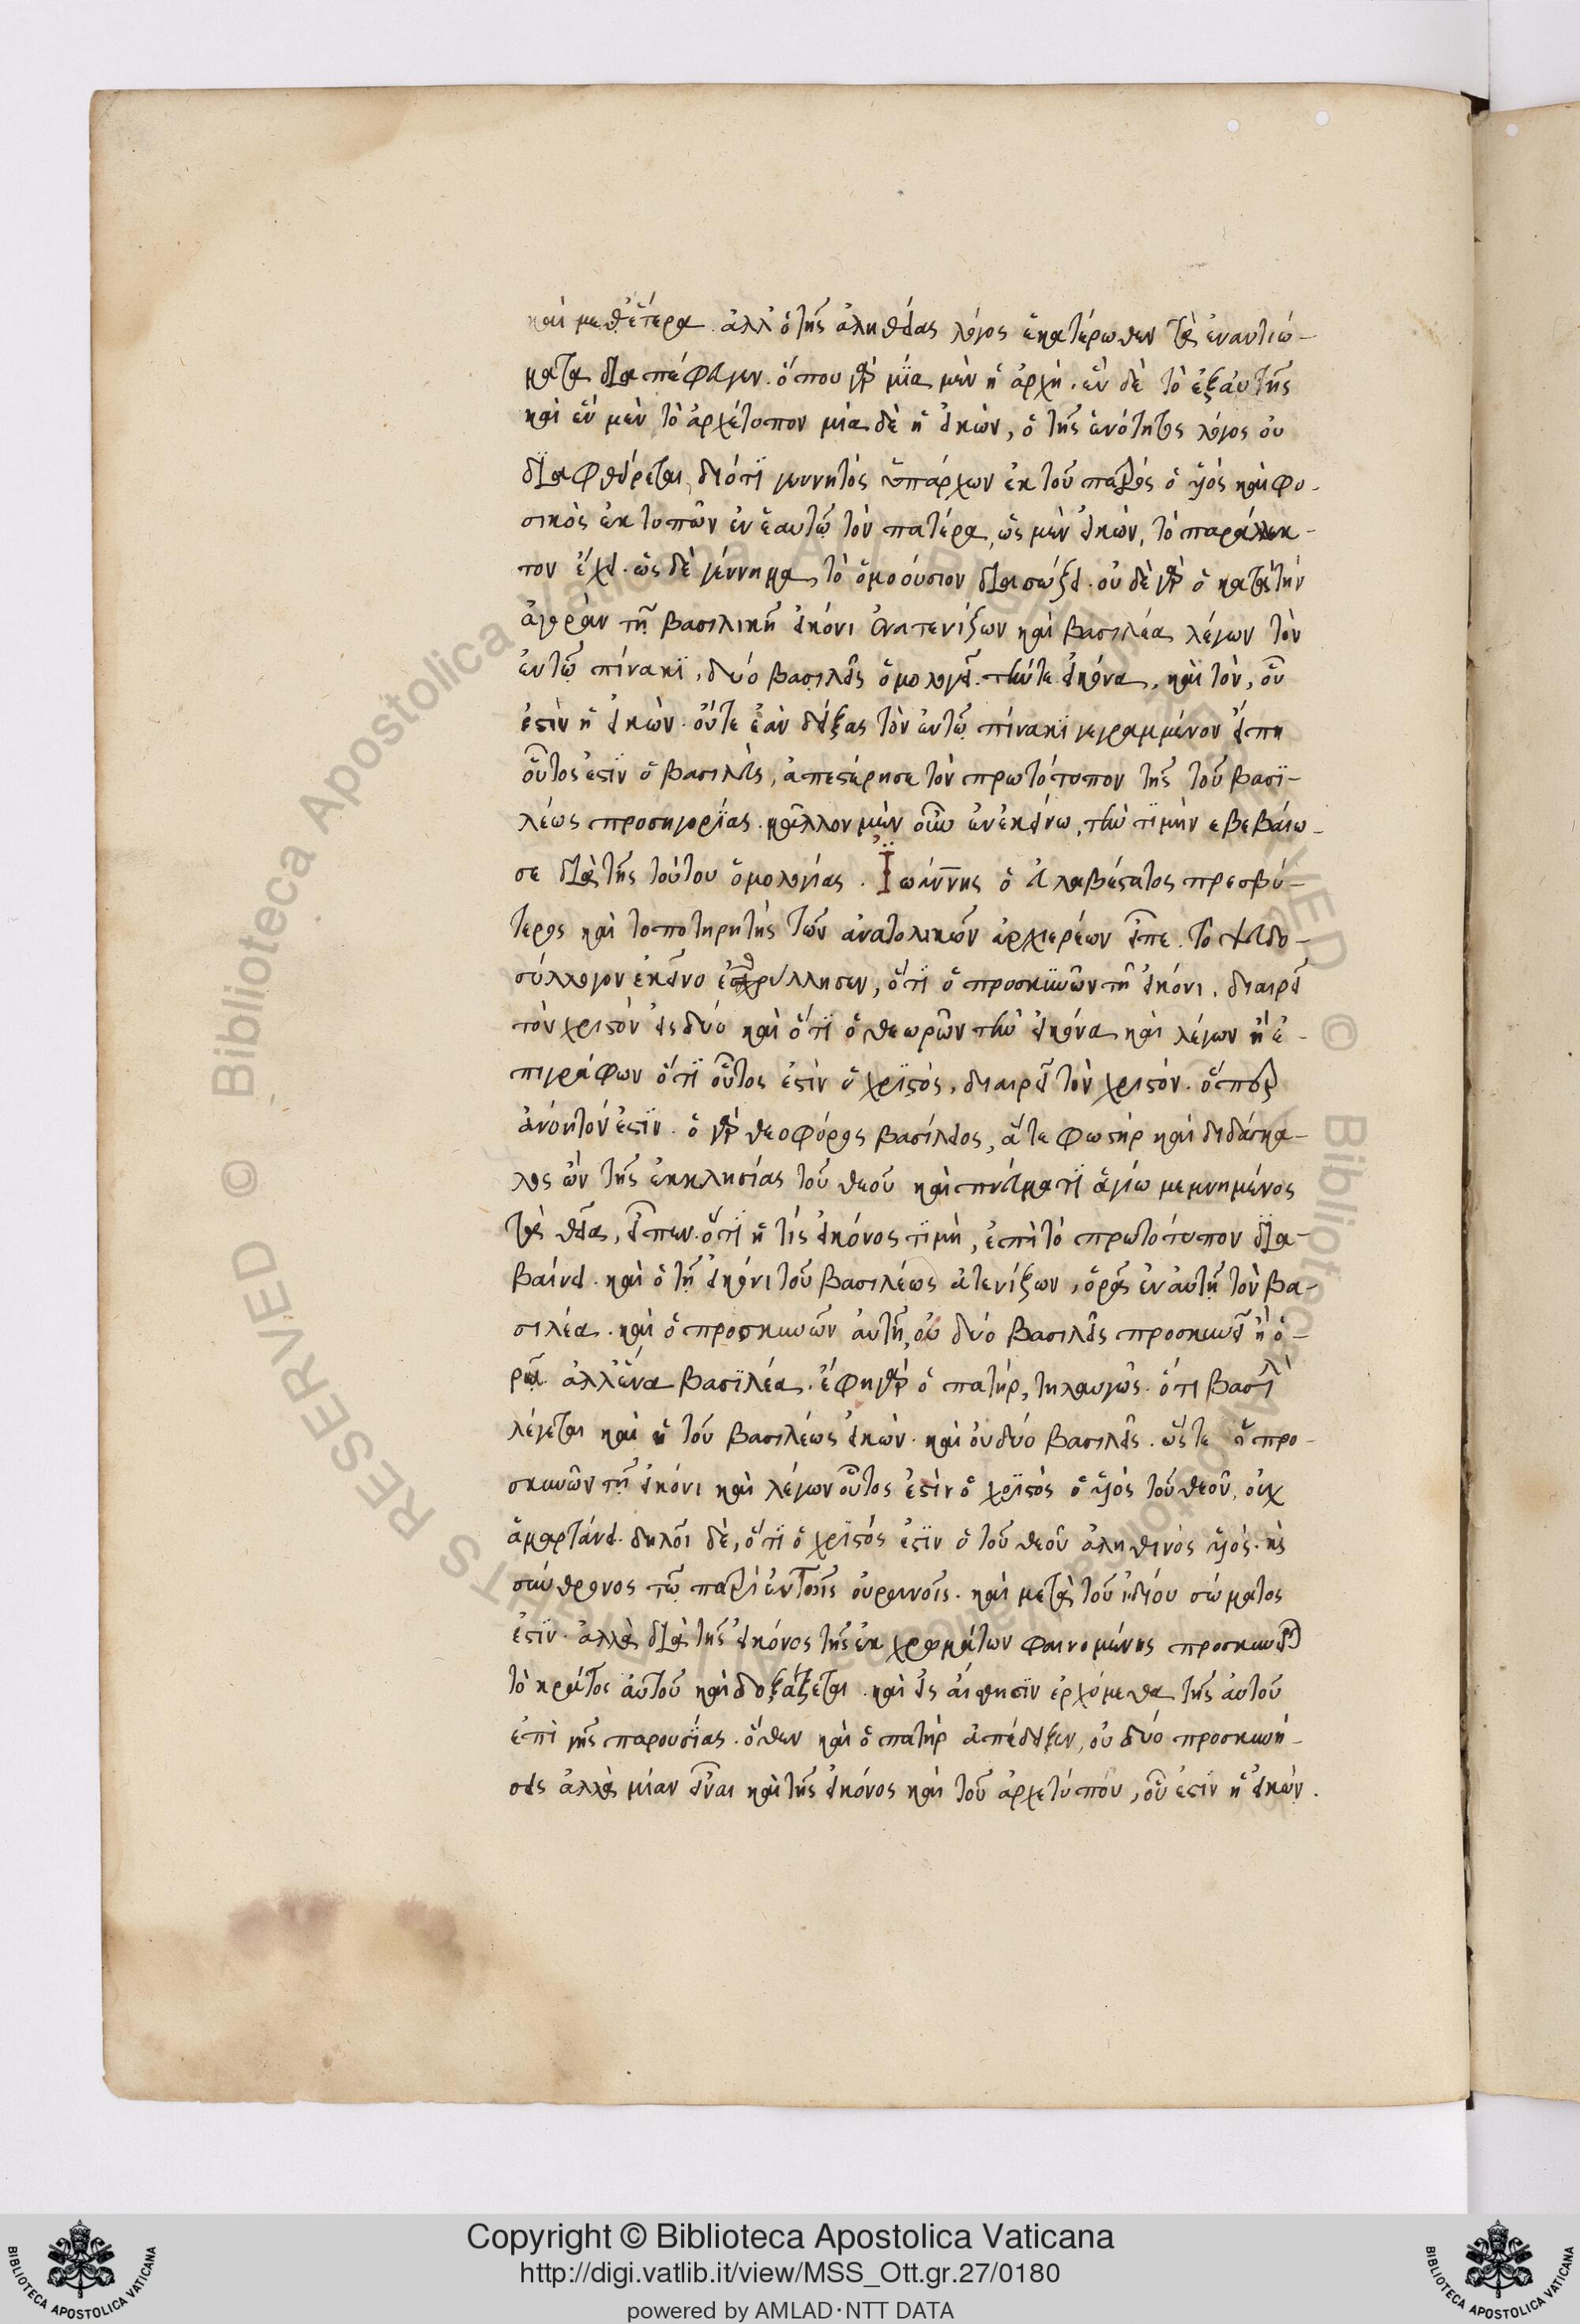 καὶ μεθ' ἕτερα. ἀλλ' ὁ τῆς ἀληθείας λόγος ἑκατέρωθεν τὰ ἐναντιώ-
ματα διαπέφευγεν. ὅπου γὰρ μία μὲν ἡ ἀρχὴ. ἓν δὲ τὸ ἐξαυτῆς
καὶ ἓν μὲν τὸ ἀρχέτυπον μία δὲ ἡ εἰκών, ὁ τῆς ἑνότητος λόγος οὐ
διαφθείρεται, διότι γεννητός ὑπάρχων ἐκ τοῦ πατρός ὁ υἱός καὶ φυ-
σικὸς ἐκτυπῶν ἐν ἑαυτῶ τὸν πατέρα, ὡς μὲν εἰκών, τὸ
τον ἔχει. ὡς δὲ γέννημα, τὸ ὁμοούσιον διασώζει. οὐ δὲ γὰρ ὁ κατὰ τὴν
ἀγορὰν τῆ βασιλικῆ εἰκόνι ἐνατενίζων καὶ βασιλέα λέγων τὸν
ἐν τῶ πίνακι, δύο βασιλεῖς ὁμολογεῖ. τήν τε εἰκόνα, καὶ τὸν, οὗ
ἐστὶν ἡ εἰκών. οὔτε ἐὰν δείξας τὸν ἐν τῶ πίνακι γεγραμμένον εἴπη
οὗτος ἐστὶν ὁ βασιλεύς, ἀπεστέρησε τὸν πρωτότυπον τῆς τοῦ βασι-
λέως προσηγορίας. μᾶλλον μὲν οὖν ἐν ἐκείνω, τὴν τιμὴν εβεβαίω-
σε διὰ τῆς τούτου ὁμολογίας. Ἰωάννης ὁ εὐλαβέστατος πρεσβύ-
τερος καὶ τοποτηρητὴς τῶν ἀνατολικῶν ἀρχιερέων εἶπε. Τὸ ψευδο-
σύλλογον ἐκεῖνο ἐθρύλλησεν, ὅτι ὁ προσκυνῶν τῆ εἰκόνι, διαιρεῖ
τὸν χριστὸν εἰς δύο καὶ ὅτι ὁ θεωρῶν τὴν εἰκόνα καὶ λέγων ἢ ἐ-
πιγράφων ὅτι οὗτος ἐστὶν ὁ χριστός, διαιρεῖ τὸν χριστόν. ὅπερ
ἀνόητόν ἐστιν. ὁ γὰρ θεοφόρος βασίλειος, ἅτε φωστὴρ καὶ διδάσκα-
λος ὢν τῆς ἐκκλησίας τοῦ θεοῦ καὶ πνεύματι ἁγίω μεμνημένος
τὰ θεῖα, εἶπεν. ὅτι ἡ τῆς εἰκόνος τιμὴ, ἐπὶ τὸ πρωτότυπον δια-
βαίνει. καὶ ὁ τῆ εἰκόνι τοῦ βασιλέως ἀτενίζων, ὁρᾶ ἐν αὐτῆ τὸν βα-
σιλέα. καὶ ὁ προσκυνῶν αὐτῆ, οὐ δύο βασιλεῖς προσκυνεῖ ἢ ὁ-
ρᾶ. ἀλλ' ἕνα βασιλέα. ἔφη γὰρ ὁ πατήρ, τηλαυγῶς. ὅτι βασιλεὺς
λέγεται καὶ ἡ τοῦ βασιλέως εἰκών. καὶ οὐ δύο βασιλεῖς. ὥστε ὁ προ-
σκυνῶν τῆ εἰκόνι καὶ λέγων οὗτος ἐστὶν ὁ χριστὸς ὁ υἱὸς τοῦ θεοῦ, οὐχ
ἁμαρτάνει. δηλοῖ δὲ, ὅτι ὁ χριστός ἐστιν ὁ τοῦ θεοῦ ἀληθινὸς υἱός. καὶ
σύνθρονος τῶ πατρὶ ἐν τοῖς οὐρανοῖς. καὶ μετὰ τοῦ ἰδίου σώματος
ἐστιν. ἀλλὰ διὰ τῆς εἰκόνος τῆς ἐκ χρωμάτων φαινομένης προσκυνεῖται
τὸ κράτος αὐτοῦ καὶ δοξάζεται. καὶ εἰς αἴσθησιν ἐρχόμεθα τῆς αὐτοῦ
ἐπὶ γῆς παρουσίας. ὅθεν καὶ ὁ πατὴρ ἀπέδειξεν, οὐ δύο προσκυνή-
σεις ἀλλὰ μίαν εἶναι καὶ τῆς εἰκόνος καὶ τοῦ ἀρχετύπου, οὗ ἐστιν ἡ εἰκών.
© Biblioteca Apostolica Vaticana ALL RIGHTS RESERVED
Copyright © Biblioteca Apostolica Vaticana
http://digi.vatlib.it/view/MSS_Ott.gr.27/0180
powered by AMLAD·NTT DATA
BIBLIOTECA APOSTOLICA VATICANA
BIBLIOTECA APOSTOLICA VATICANA